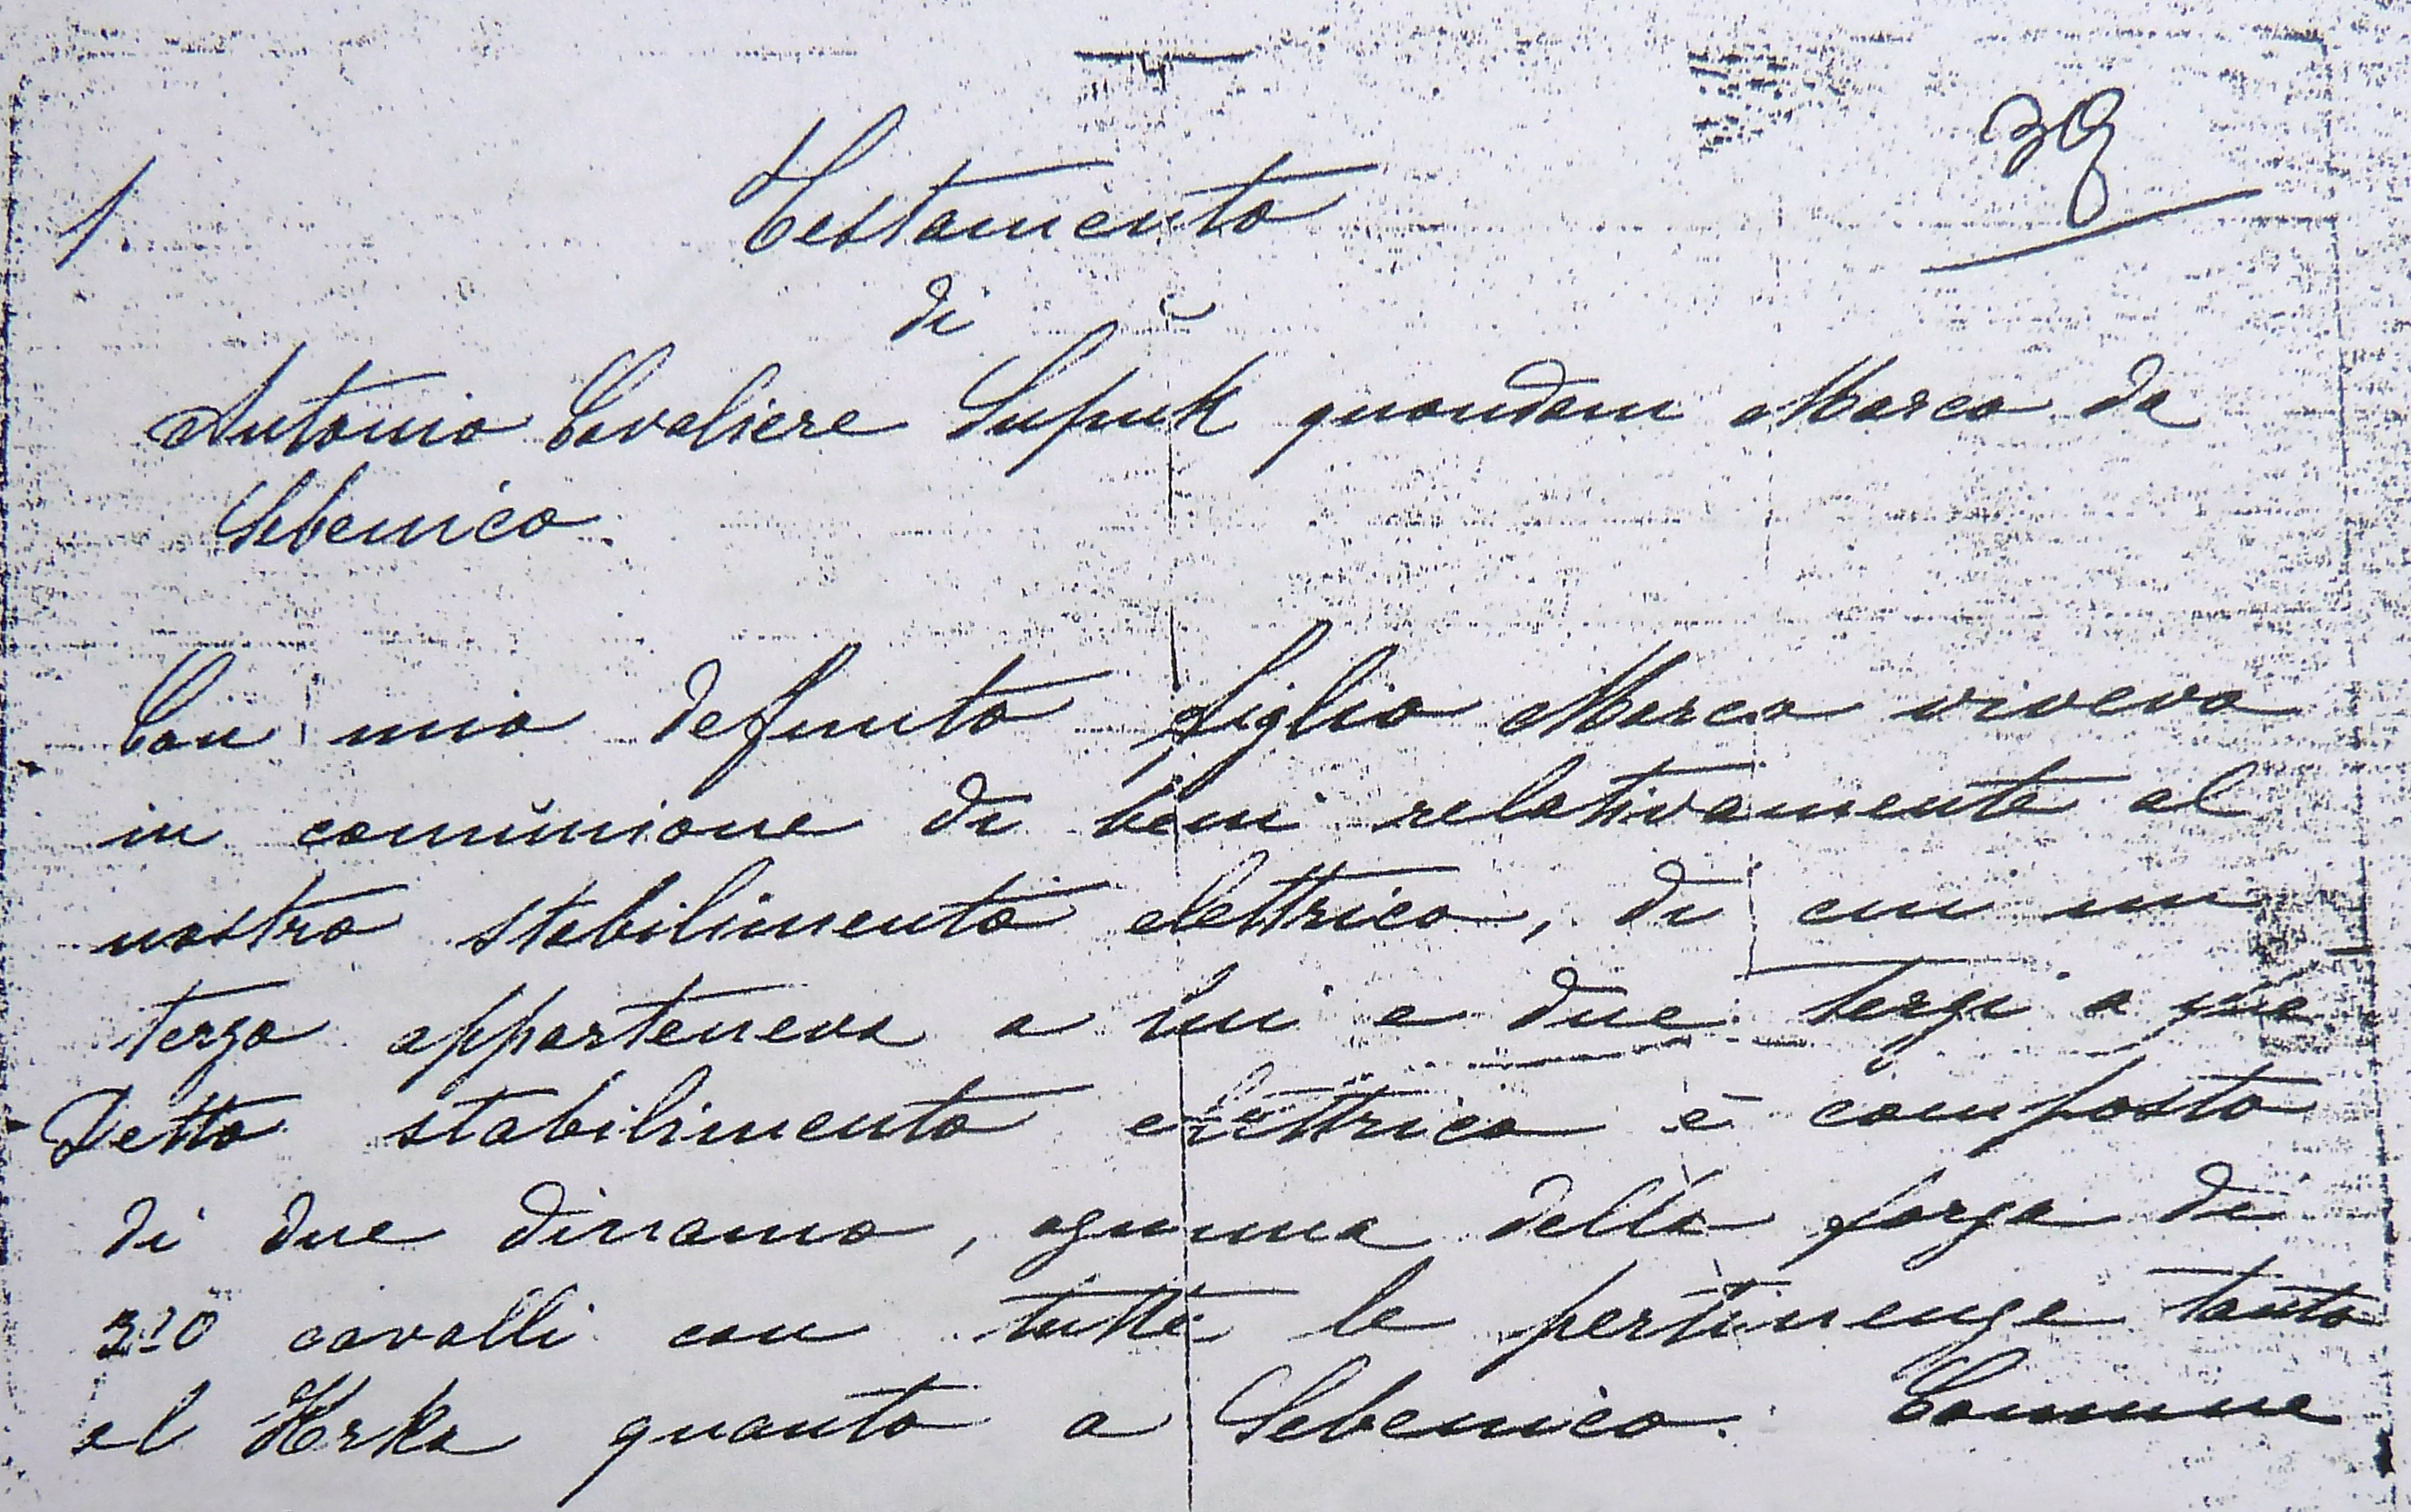 1
39
Testamento
di
Antonio Cavaliere Supuk quondam Marco da
Sebenico.
Con mio defunto figlio Marco viveva
in comunione di beni relativamente al
nostro stabilimento elettrico, di cui un
terzo apparteneva a lui e due terzi a me
Detto stabilimento elettrico è composto
di due dinamo, ognuna della forza di
320 cavalli con tutte le pertinenze tanto
al Krka quanto a Sebenico. Comune